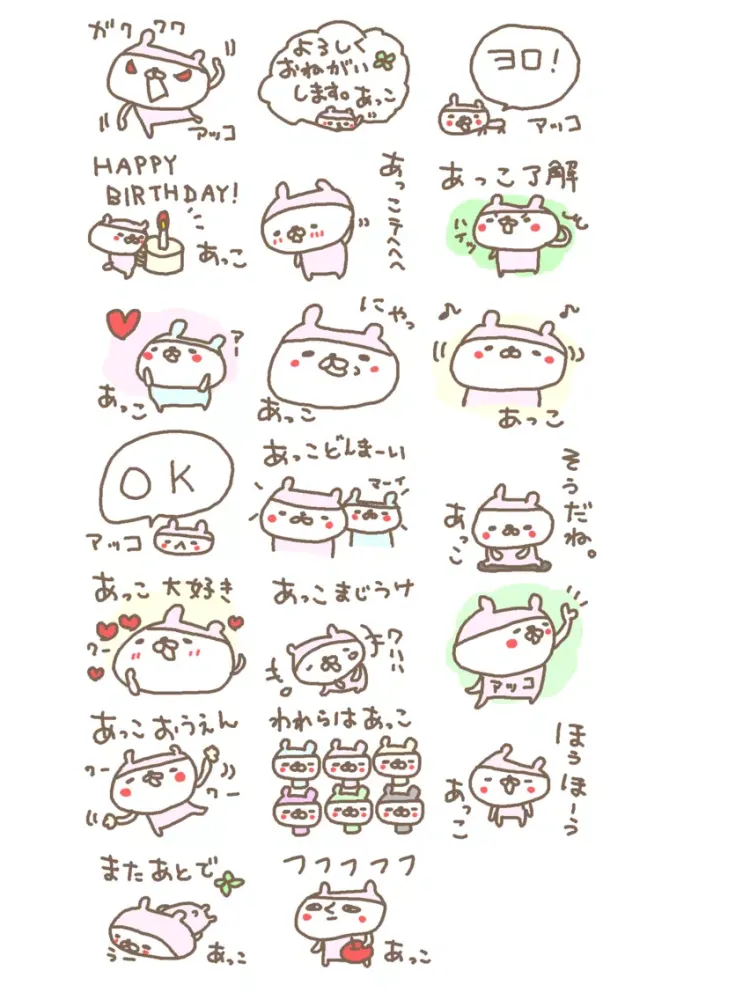 ガクワワ
アッコ
よろしく
おねがい
します。あっこ
ヨロ!
アッコ
HAPPY
BIRTHDAY!
あっこ
あっこテヘヘヘ
あっこ了解
ハイッ
あっこ
にゃっ
あっこ
あっこ
OK
アッコ
あっこどんまーい
マーイ
そうだね。
あっこ
あっこ大好き
あっこまじうけ
ワハハ
アッコ
あっこおうえん
ワー
ワー
われらはあっこ
ほうほーう
あっこ
またあとで
うー
あっこ
フフフフフ
あっこ